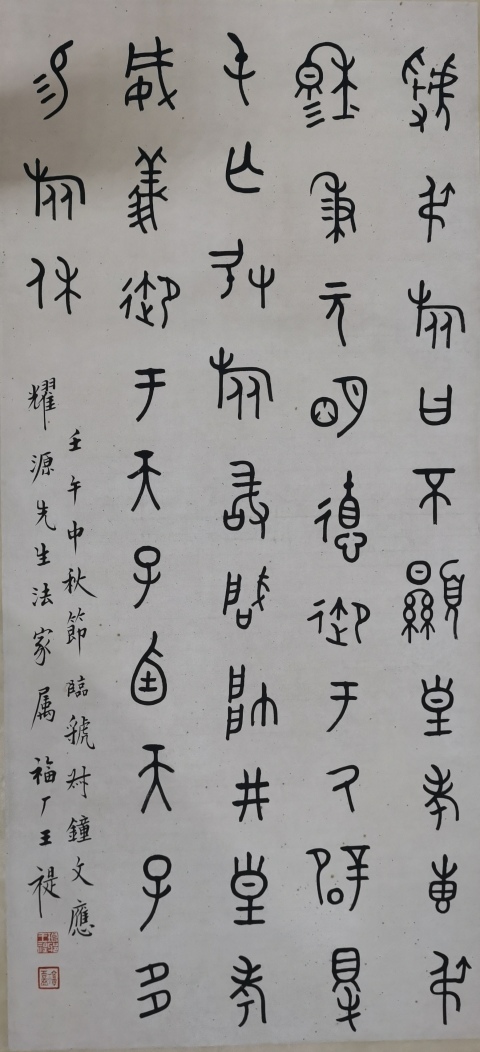 虢叔旅曰不顯皇考叀叔
穆=秉元明德御于氒辟得
屯亡敃旅敢肈帥井皇考
威義御于天子卣天子多
易旅休
壬午中秋節臨虢叔鐘文應
耀源先生法家属福厂王禔